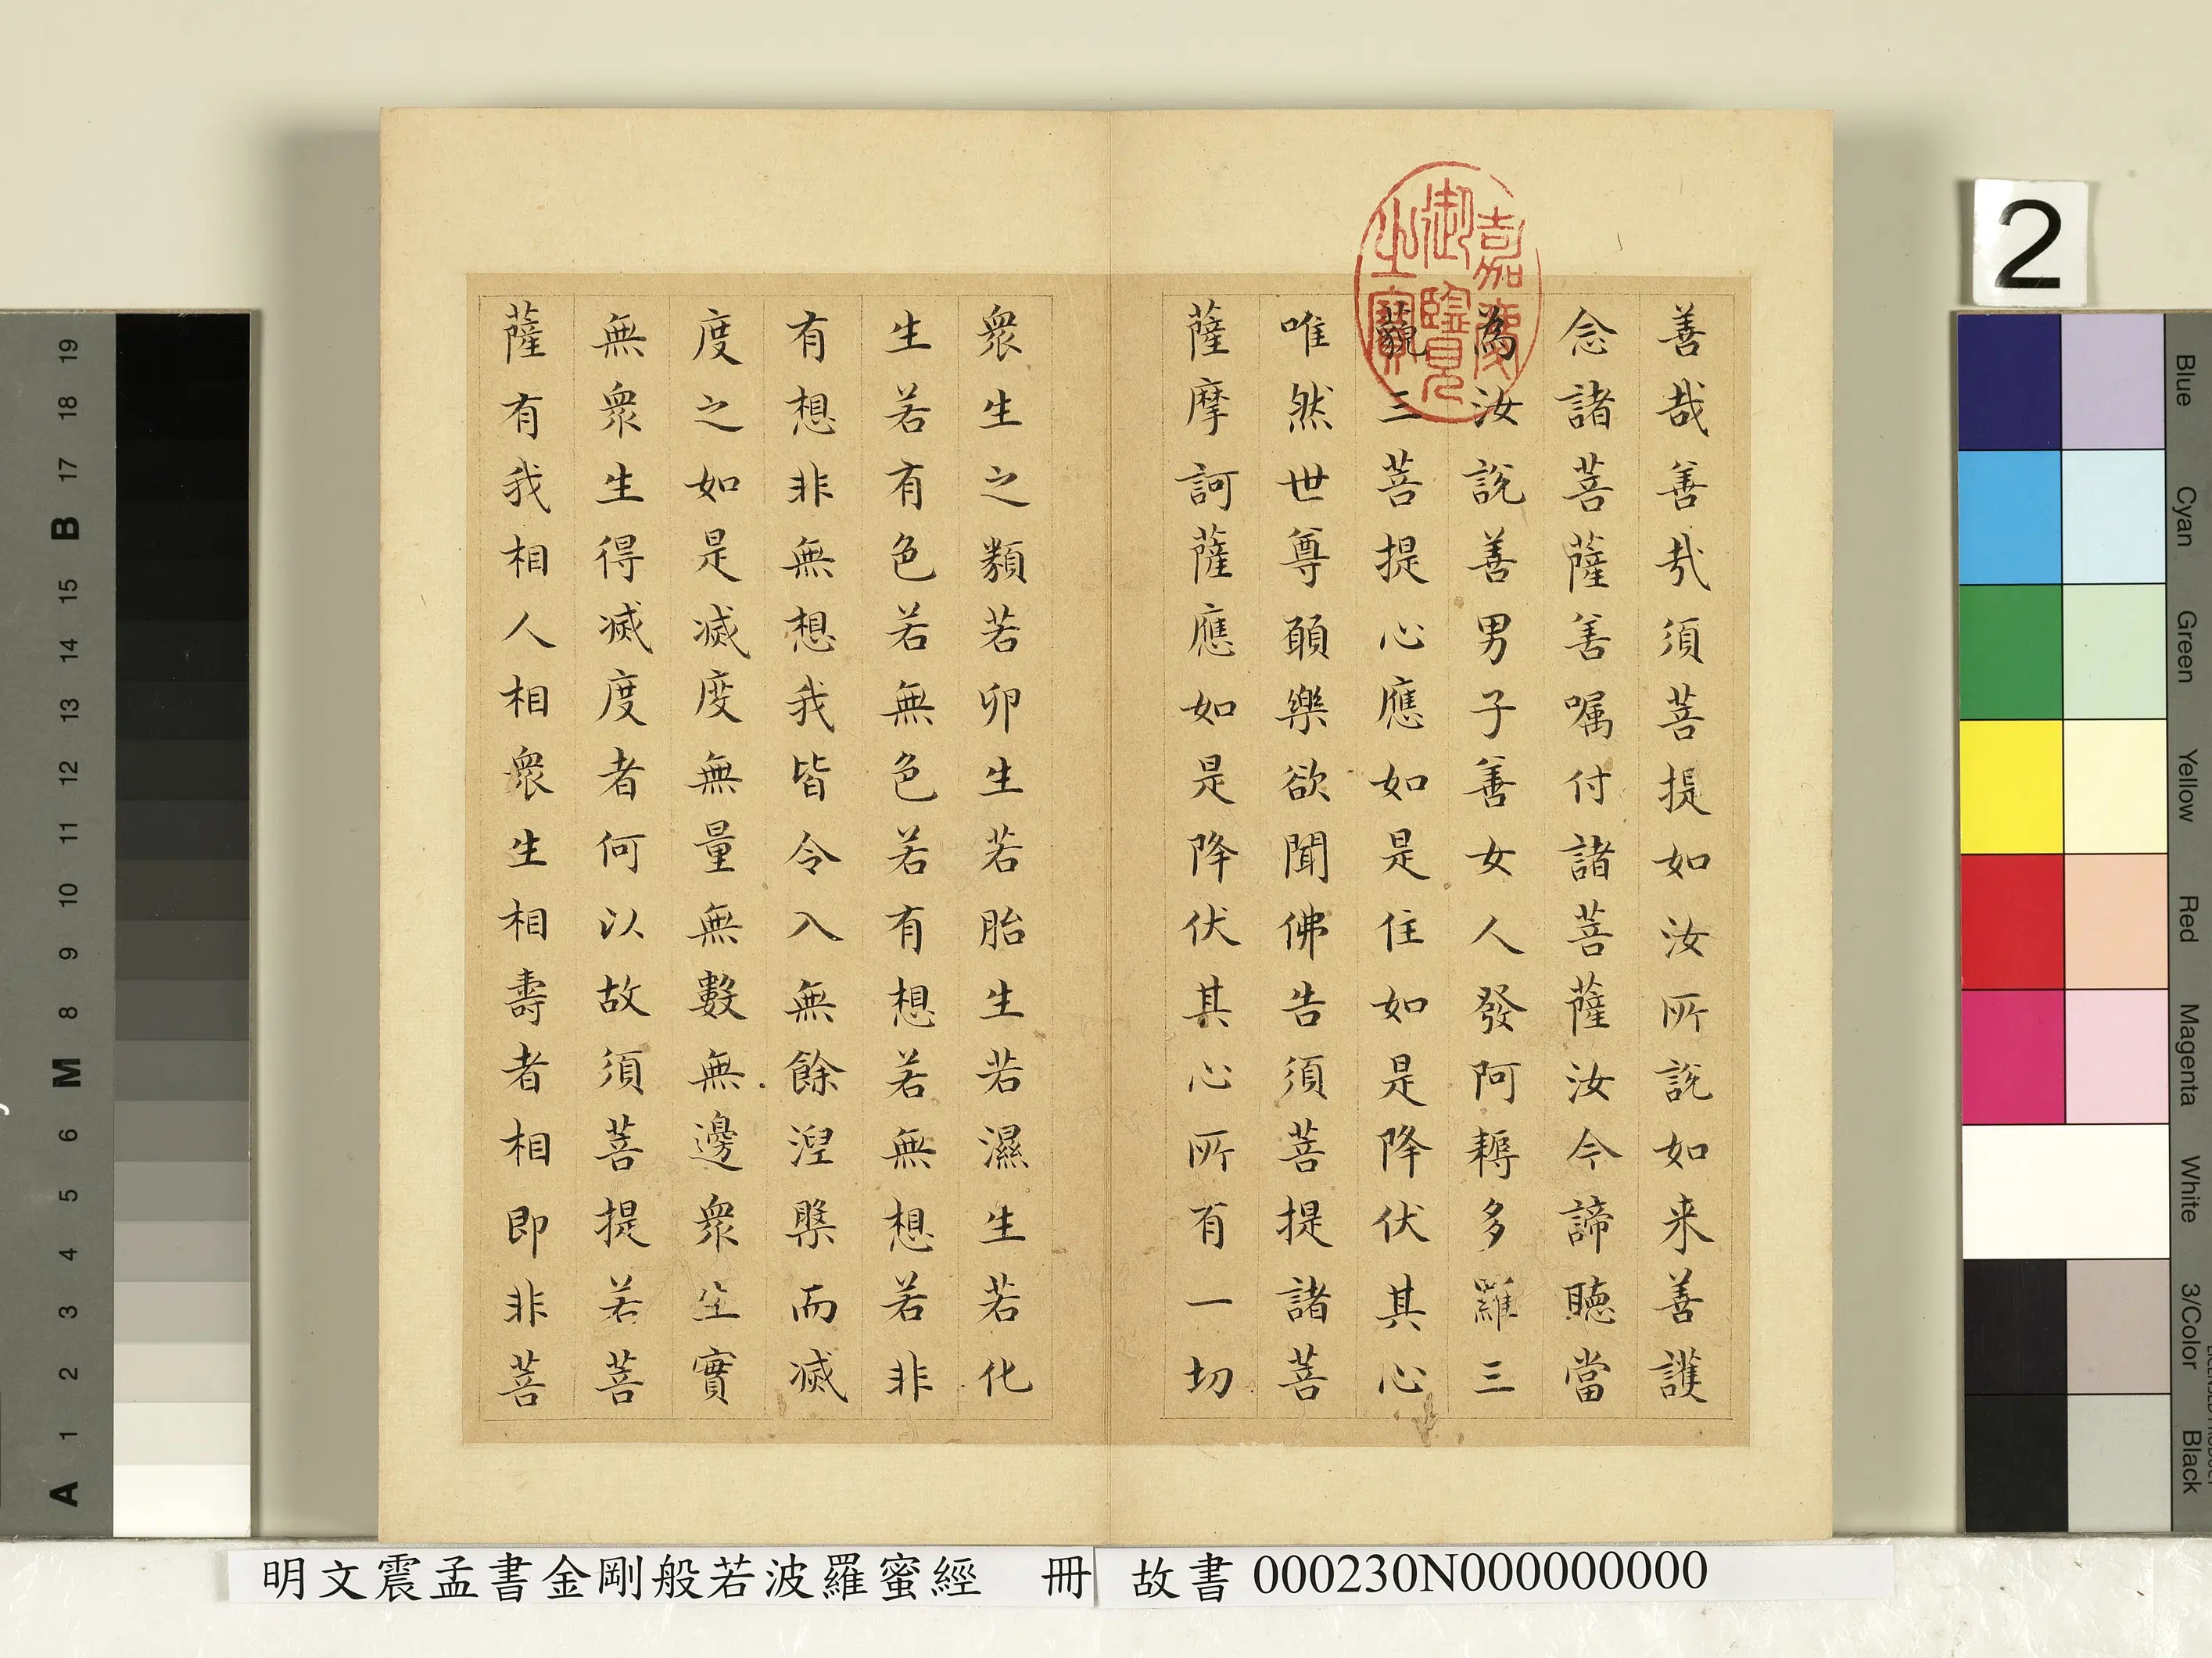 善哉善哉須菩提如汝所說如来善護
念諸菩薩善嘱付諸菩薩汝今諦聽當
為汝說善男子善女人發阿耨多羅三
藐三菩提心應如是住如是降伏其心
唯然世尊願樂欲聞佛告須菩提諸菩
薩摩訶薩應如是降伏其心所有一切
衆生之類若卵生若胎生若濕生若化
生若有色若無色若有想若無想若非
有想非無想我皆令入無餘涅槃而滅
度之如是滅度無量無數無邊衆生實
無衆生得滅度者何以故須菩提若菩
薩有我相人相衆生相壽者相即非菩
嘉慶
御覽
之寶
明文震孟書金剛般若波羅蜜經 冊
故書 000230N000000000
2
19
18
17
B
16
15
14
13
12
11
10
9
8
M
6
5
4
3
2
1
A
Blue
Cyan
Green
Yellow
Red
Magenta
White
3/Color
Black